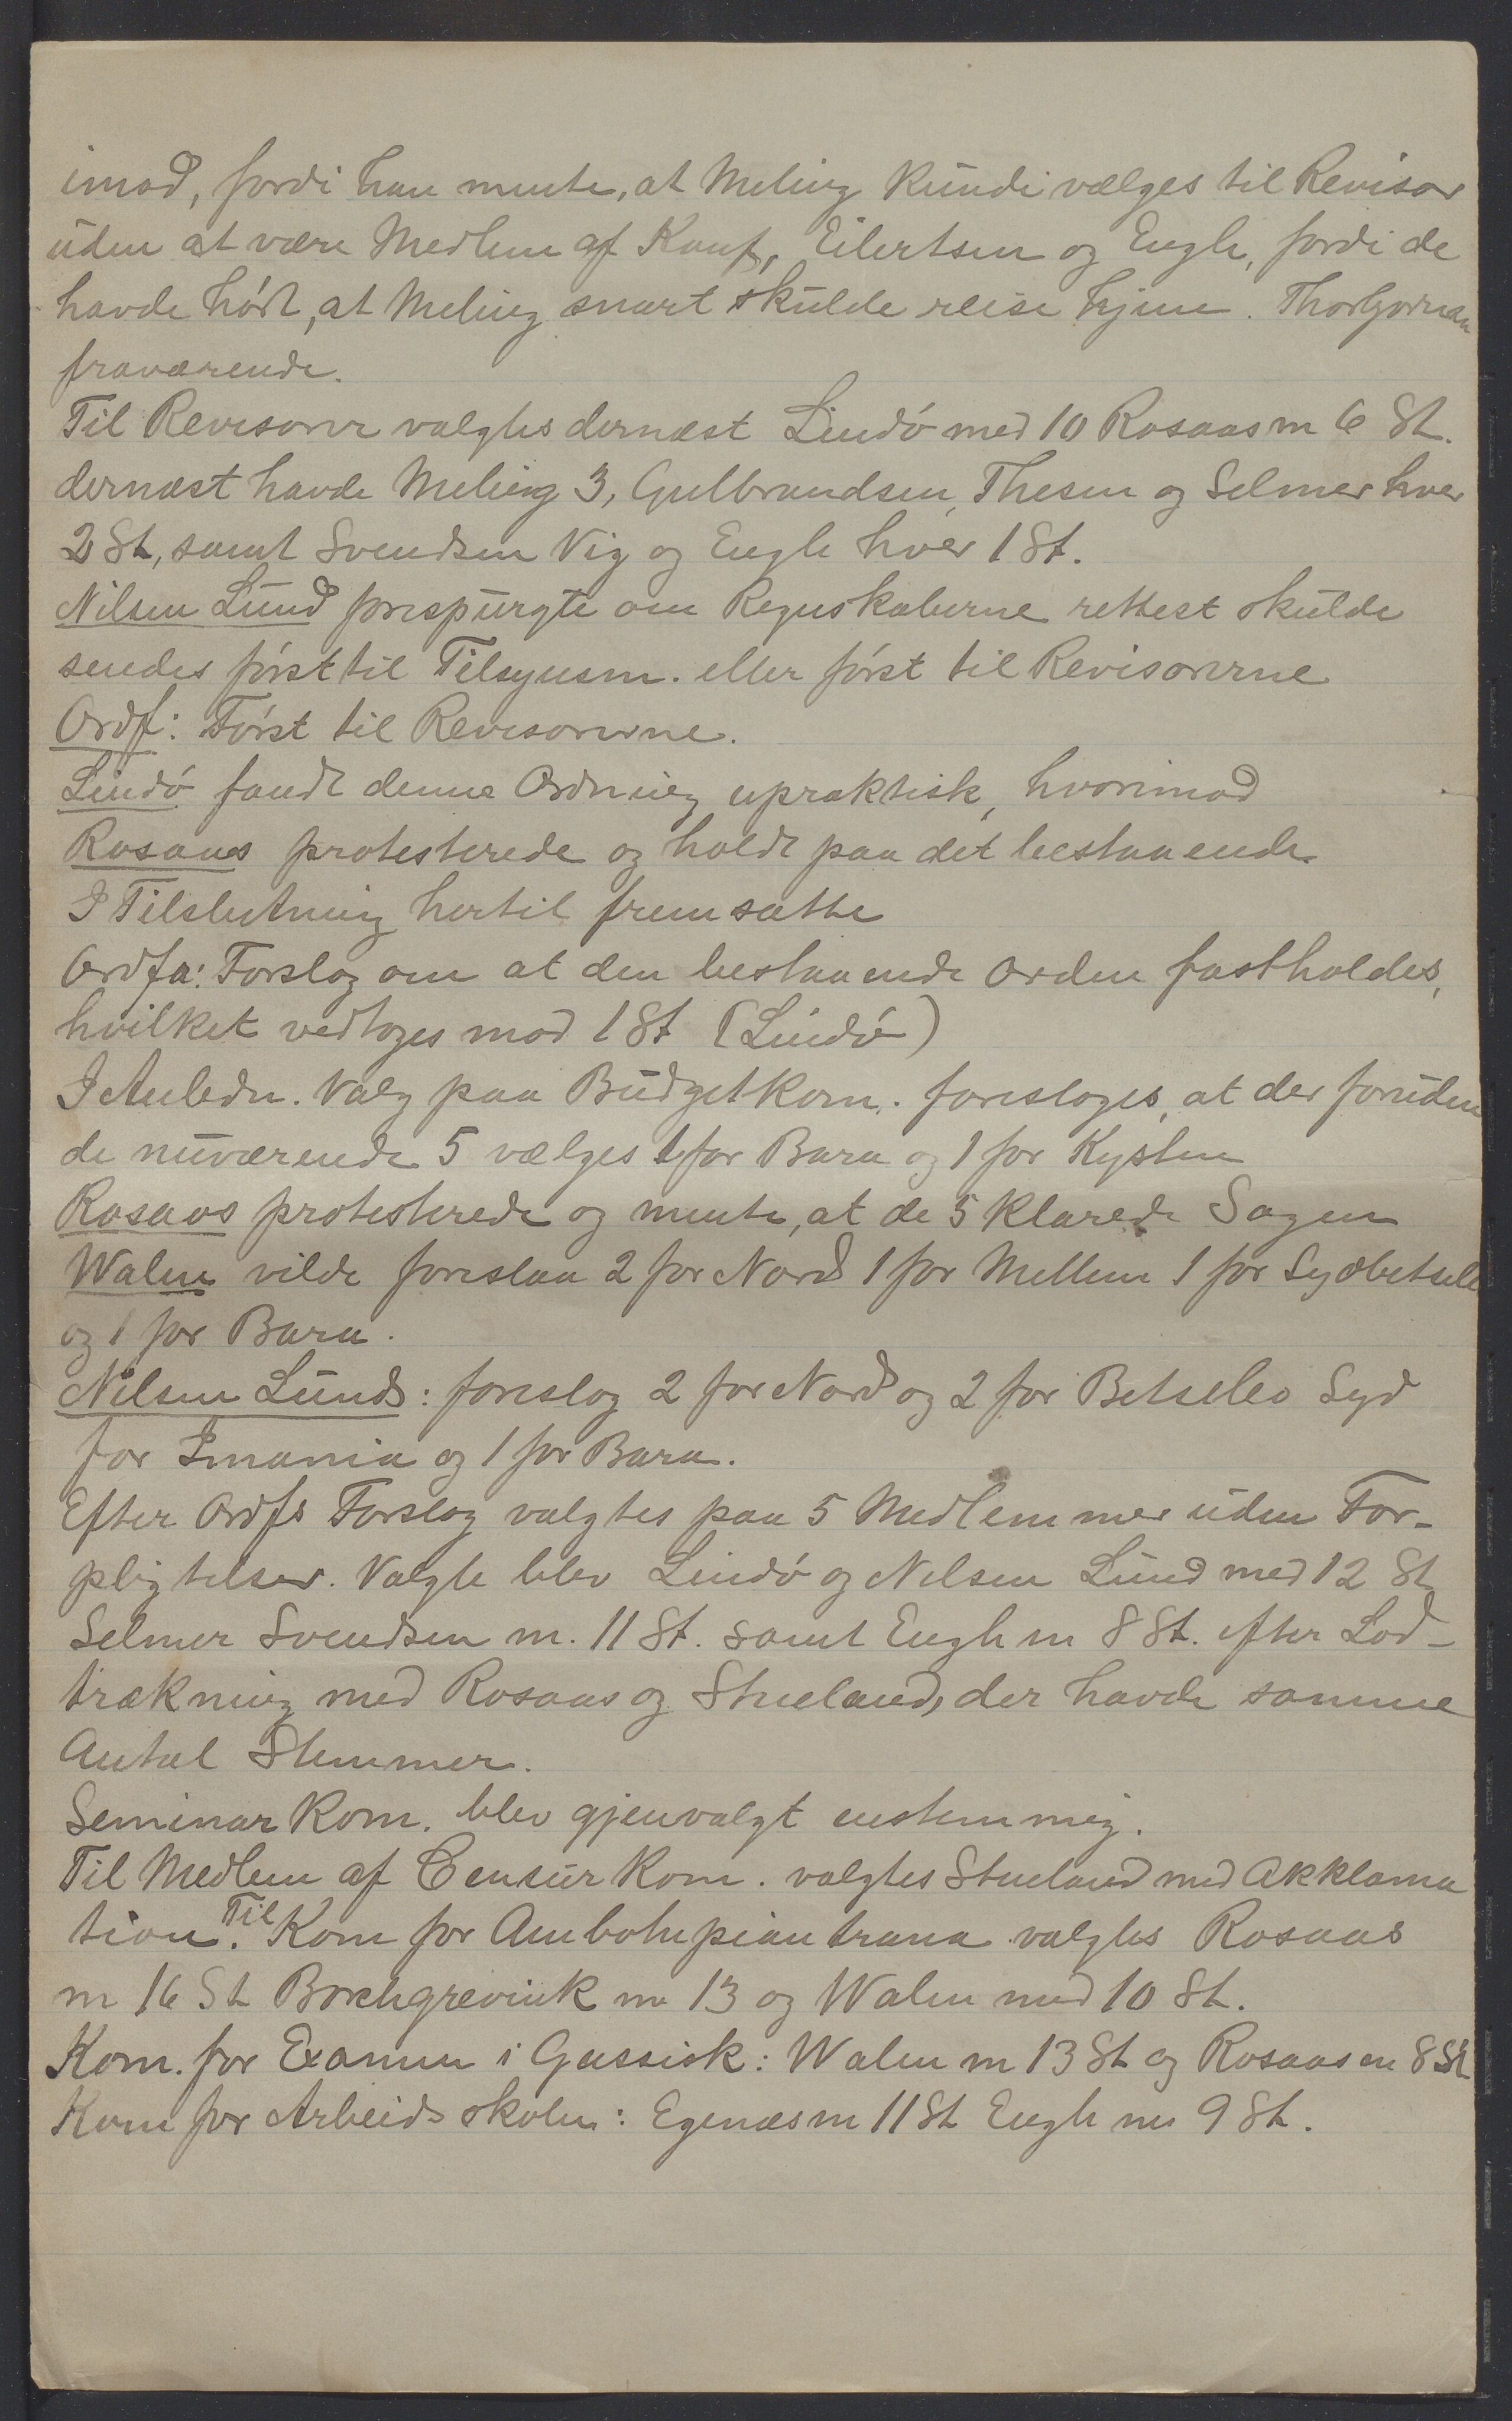 imod, fordi han mente, at Meling kunde vælges til Revisor
uden at være Medlem af Konf, Eilertsen og Engh, fordi de
havde hørt, at Meling snart skulde reise hjem. Thorbjørnsen
fraværende.
Til Revisorer valgtes dernæst Lindø med 10 Rosaas m 6 St.
dernæst havde Meling 3, Gulbrandsen, Thesen og Selmer hver
2 St, samt Svendsen Vig og Engh hver 1 St.
Nilsen Lund forespurgte om Regnskaberne rettest skulde
sendes først til Tilsynsm. eller først til Revisorerne
Ordf: Først til Revisorerne.
Lindø fandt denne Ordning upraktisk, hvorimod
Rosaas protesterede og holdt paa det bestaaende
I Tilslutning hertil fremsatte
Ordfø: Forslag om at den bestaaende Orden fastholdes,
hvilket vedtoges mod 1 St (Lindø)
I Anledn. Valg paa Budgetkom. foresloges, at der foruden
de nuværende 5 vælges 1 for Bara og 1 for Kysten
Rosaas protesterede og mente, at de 5 klarede Sagen
Walen vilde foreslaa 2 for Nord 1 for Mellem 1 for Sydbetsileo
og 1 for Bara.
Nilsen Lunds: foreslog 2 for Nord og 2 for Betsileo Syd
for Imania og 1 for Bara.
Efter Ordfs Forslag valgtes paa 5 Medlemmer uden For-
pligtelser. Valgte blev Lindø og Nilsen Lund med 12 St
Selmer Svendsen m. 11 St. samt Engh m 8 St. efter Lod-
trækning med Rosaas og Stueland, der havde samme
Antal Stemmer.
Seminar Kom. blev gjenvalgt enstemmig.
Til Medlem af Censur Kom. valgtes Stueland med Akklama
tion. Til Kom for Ambohipiantrana valgtes Rosaas
m 16 St Borchgrevink m 13 og Walen med 10 St.
Kom. for Examen i Gassisk: Walen m 13 St og Rosaas m 8 St
Kom for Arbeidsskolen: Egenæs m 11 St Engh m 9 St.